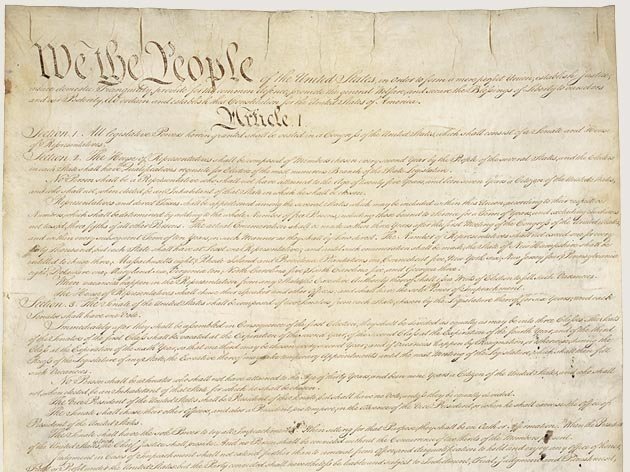 We the People of the United States, in Order to form a more perfect Union, establish Justice,
insure domestic Tranquility, provide for the common defence, promote the general Welfare, and secure the Blessings of Liberty to ourselves
and our Posterity, do ordain and establish this Constitution for the United States of America.
Article I.
Section 1. All legislative Powers herein granted shall be vested in a Congress of the United States, which shall consist of a Senate and House
of Representatives.
Section 2. The House of Representatives shall be composed of Members chosen every second Year by the People of the several States, and the Electors
in each State shall have Qualifications requisite for Electors of the most numerous Branch of the State Legislature.
No Person shall be a Representative who shall not have attained to the Age of twenty five Years, and been seven Years a Citizen of the United States,
and who shall not, when elected, be an Inhabitant of that State in which he shall be chosen.
Representatives and direct Taxes shall be apportioned among the several States which may be included within this Union, according to their respective
Numbers, which shall be determined by adding to the whole Number of free Persons, including those bound to Service for a Term of Years, and excluding Indians
not taxed, three fifths of all other Persons. The actual Enumeration shall be made within three Years after the first Meeting of the Congress of the United States,
and within every subsequent Term of ten Years, in such Manner as they shall by Law direct. The Number of Representatives shall not exceed one for every
thirty Thousand, but each State shall have at Least one Representative; and until such enumeration shall be made, the State of New Hampshire shall be
entitled to chuse three, Massachusetts eight, Rhode Island and Providence Plantations one, Connecticut five, New York six, New Jersey four, Pennsylvania
eight, Delaware one, Maryland six, Virginia ten, North Carolina five, South Carolina five, and Georgia three.
When vacancies happen in the Representation from any State, the Executive Authority thereof shall issue Writs of Election to fill such Vacancies.
The House of Representatives shall chuse their Speaker and other Officers; and shall have the sole Power of Impeachment.
Section 3. The Senate of the United States shall be composed of two Senators from each State, chosen by the Legislature thereof, for six Years; and each
Senator shall have one Vote.
Immediately after they shall be assembled in Consequence of the first Election, they shall be divided as equally as may be into three Classes. The Seats
of the Senators of the first Class shall be vacated at the Expiration of the second Year, of the second Class at the Expiration of the fourth Year, and of the third
Class at the Expiration of the sixth Year, so that one third may be chosen every second Year; and if Vacancies happen by Resignation, or otherwise, during the
Recess of the Legislature of any State, the Executive thereof may make temporary Appointments until the next Meeting of the Legislature, which shall then fill
such Vacancies.
No Person shall be a Senator who shall not have attained to the Age of thirty Years, and been nine Years a Citizen of the United States, and who shall
not, when elected, be an Inhabitant of that State for which he shall be chosen.
The Vice President of the United States shall be President of the Senate, but shall have no Vote, unless they be equally divided.
The Senate shall chuse their other Officers, and also a President pro tempore, in the Absence of the Vice President, or when he shall exercise the Office of
President of the United States.
The Senate shall have the sole Power to try all Impeachments. When sitting for that Purpose, they shall be on Oath or Affirmation. When the President
of the United States is tried, the Chief Justice shall preside: And no Person shall be convicted without the Concurrence of two thirds of the Members present.
Judgment in Cases of Impeachment shall not extend further than to removal from Office, and disqualification to hold and enjoy any Office of honor,
Trust or Profit under the United States: but the Party convicted shall nevertheless be liable and subject to Indictment, Trial, Judgment and Punishment,